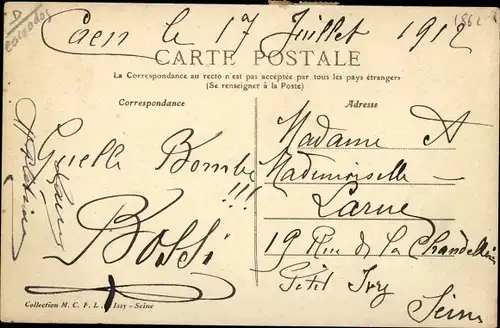 D
Calvados
1862
Caen le 17 Juillet 1912
CARTE POSTALE
La Correspondance au recto n'est pas acceptée par tous les pays étrangers
(Se renseigner à la Poste)
Correspondance
Adresse
Quelle Bombe
!!!
Bossi
Madame &
Mademoiselle
Larue
19 Rue de la Chandell
Petit Ivry
Seine
Collection M. C. F. I. Issy - Seine